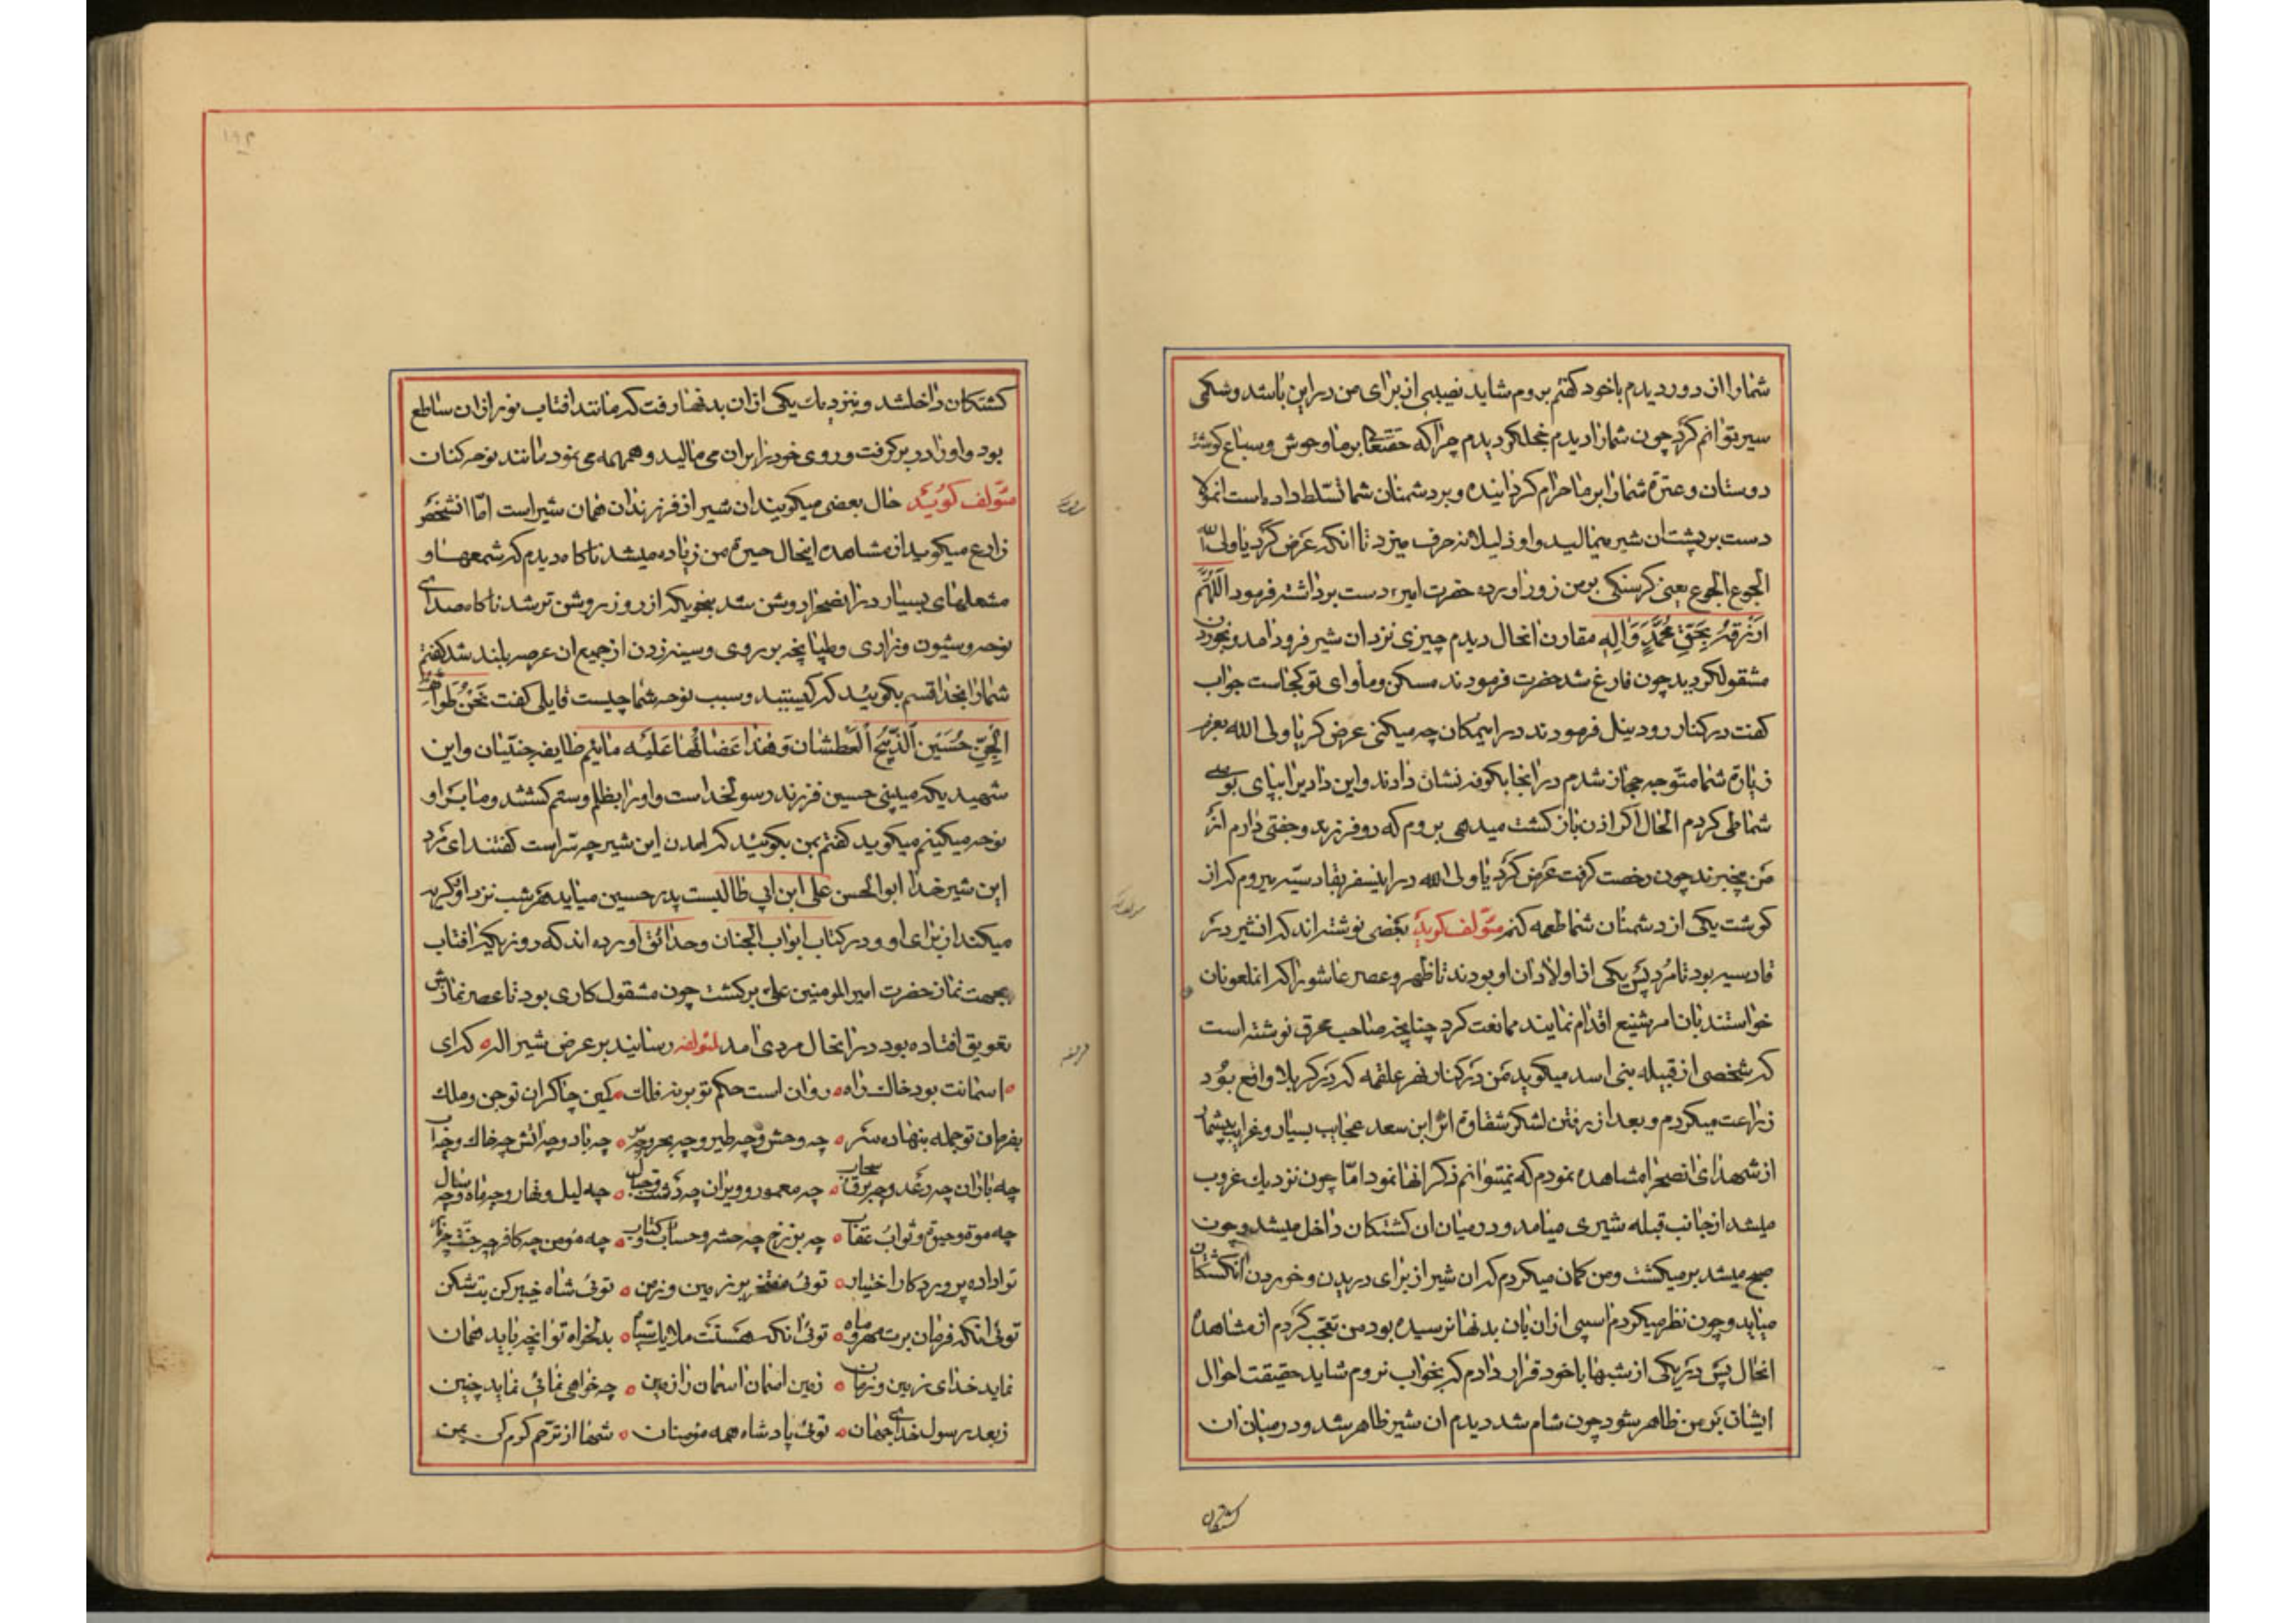 شمارا از دور دیدم با خود گفتم بروم شاید نصیبی از برای من در این باشد و شکمی
سیر توانم کرد چون شمارا دیدم خجل گردیدم چرا که حقتعا بر ما وحوش و سباع گوشت
دوستان و عترة شمارا بر ما حرام گردانیده و بر دشمنان شما تسلط داده است انمولا
دست بر پشت ان شیر میمالید و او ذلیلانه حرف میزد تا انکه عرض کرد یا ولی الله
الجوع الجوع یعنی کرسنکی بر من زور اورده حضرت امیر دست برداشته فرمود اللهم
ارزقه بحق محمد و اله مقارن انحال دیدم چیزی نزد ان شیر فرود امد و بخوردن
مشقول کردید چون فارغ شد حضرت فرمودند مسکن و مأوای تو کجاست جواب
کفت در کنار رود نیل فرمودند در این مکان چه میکنی عرض کرد یا ولی الله بعزم
زیارة شما متوجه حجاز شدم در انجا بکوفه نشان دادند و این وادیرا بپای بوسی
شما طی کردم الحال اکر اذن باز کشت میدهی بروم که دو فرزند و جفتی دارم از
من بیخبرند چون رخصت کرفت عرض کرد یا ولی الله در اینسفر بقادسیه میروم که از
کوشت یکی از دشمنان شما طعمه کنم مؤلف کوید بعضی نوشته اند که انشیر در
قادسیه بود تا مرد پس یکی از اولادان او بودند تا ظهر و عصر عاشورا که انملعونان
خواستند بان امر شنیع اقدام نمایند ممانعت کرد چنانچه صاحب محرق نوشته است
که شخصی از قبیله بنی اسد میکوید من در کنار نهر علقمه که در کربلا واقع بود
زراعت میکردم و بعد از رفتن لشکر شقاوة اثر ابن سعد عجایب بسیار و غرایب بیشمار
از شهدای انصحرا مشاهده نمودم که نمیتوانم ذکر انها نمود اما چون نزدیك غروب
میشد از جانب قبله شیری میامد و در میان ان کشتکان داخل میشد و چون
صبح میشد بر میکشت و من کمان میکردم که ان شیر از برای دریدن و خوردن انکشتکان
میاید و چون نظر میکردم اسیبی از ان بان بدنها نرسیده بود من تعجب کردم از مشاهده
انحال پس در یکی از شبها با خود قرار دادم که بخواب نروم شاید حقیقت احوال
ایشان بر من ظاهر شود چون شام شد دیدم ان شیر ظاهر شد و در میان ان
کشتکان
کشتکان داخلشد و بنزدیك یکی از ان بدنها رفت که مانند افتاب نور از ان ساطع
بود و او را در بر کرفت و روی خود را بر ان می مالید و همهمه می نمود مانند نوحه کنان
مؤلف کوید حال بعضی میکویند ان شیر از فرزندان همان شیر است اما انشخص
زارع میکوید از مشاهده اینحال حیرة من زیاده میشد ناکاه دیدم که شمعها و
مشعلهای بسیار در انصحرا روشن شد بنحویکه از روز روشن تر شد ناکاه صدای
نوحه و شیون و زاری و طپانچه بر روی و سینه زدن از جمیع ان عرصه بلند شد کفتم
شمارا بخدا قسم بکویید که کیستید و سبب نوحه شما چیست قایلی کفت نحن طوایف
الجن حسین الذبیح العطشان و هذا عضائها علیه مائیم طایفه جنیان و این
شهید یکه میبینی حسین فرزند رسولخداست و او را بظلم و ستم کشتند و ما بر او
نوحه میکینم میکوید کفتم بمن بکوئید که امدن این شیر چه سر است کفتند ای مرد
این شیر خدا ابوالحسن علی ابن ابی طالبست پدر حسین میاید هر شب نزد او و کریه
میکند از برای او و در کتاب ابواب الجنان و حدائق اورده اند که روزیکه افتاب
بجهت نماز حضرت امیر المومنین علی برکشت چون مشقول کاری بود تا عصر نمازش
بتعویق افتاده بود در انحال مردی امد لمؤلفه رسانید بر عرض شیر اله ه که ای
ه اسمانت بود خاك راه ه روان است حکم تو بر نه فلك ه کمین چاکران تو جن و ملك
بفرمان تو جمله بنهاده سر ه چه وحش و چه طیر و چه بحر و چه بر ه چه باد و چه اتش چه خاك و چه اب
چه باران چه رعد و چه برق سحاب ه چه معمور و ویران چه دشت و جبل ه چه لیل و نهار و چه ماه و چه سال
چه موة و حیوة و ثواب عقاب ه چه برزخ چه حشر و حساب و کتاب ه چه مؤمن چه کافر چه جنت چه نار
ترا داده پروردکار اختیار ه توئی مفتخر بر زمین و زمن ه توئی شاه خیبر کن بت شکن
توئی انکه فرمان برت مهر و ماه ه توئی انکه هستت ملایك سپاه ه بدلخواه تو انچه باید همان
نماید خدای زمین و زمان ه زمین اسمان اسمان را زمین ه چه خواهی نمائی نماید چنین
ز بعد رسول خدای جهان ه توئی پادشاه همه مؤمنان ه شها از ترحم کرم کن بمن